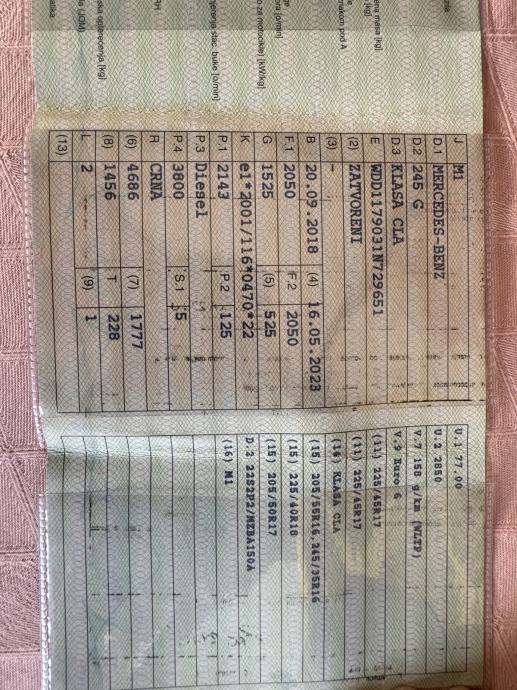 J M1
D.1 MERCEDES-BENZ
D.2 245 G
D.3 KLASA CLA
E WDD1179031N729651
(2) ZATVORENI
(3) -
B 20.09.2018 (4) 16.05.2023
F.1 2050 F.2 2050
G 1525 (5) 525
K e1*2001/116*0470*22
P.1 2143 P.2 125
P.3 Diesel
P.4 3800 S.1 5
R CRNA
(6) 4686 (7) 1777
(8) 1456 T 228
L 2 (9) 1
(13)
U.1 77.00
U.2 2850
V.7 158 g/km (WLTP)
V.9 Euro 6
(11) 225/45R17
(11) 225/45R17
(14) KLASA CLA
(15) 205/55R16,245/35R18
(15) 225/40R18
(15) 205/50R17
D.2 22S2P2/MZBA150A
(16) M1
masa [kg]
[kg]
makom pod A
[o/min]
za motocikle) [kW/kg]
stac. buke [o/min]
opterećenja [kg]
(JOM)